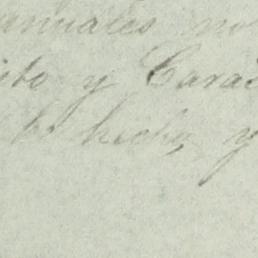 anuales no
ito y Carac
lo hecho, y